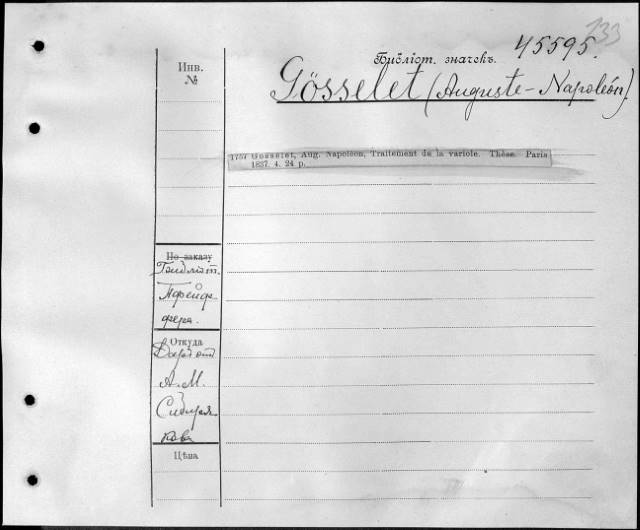 133
Библіот. значекъ. 45595.
Инв.
№
Gösselet (Auguste-Napoleón).
1757 Gosselet, Aug. Napoleon, Traitement de la variole. Thèse. Paris
1837. 4. 24 p.
По заказу
Библіот.
Пфейф-
фера.
Откуда
Даръ отъ
А. М.
Сибиря-
кова
Цѣна